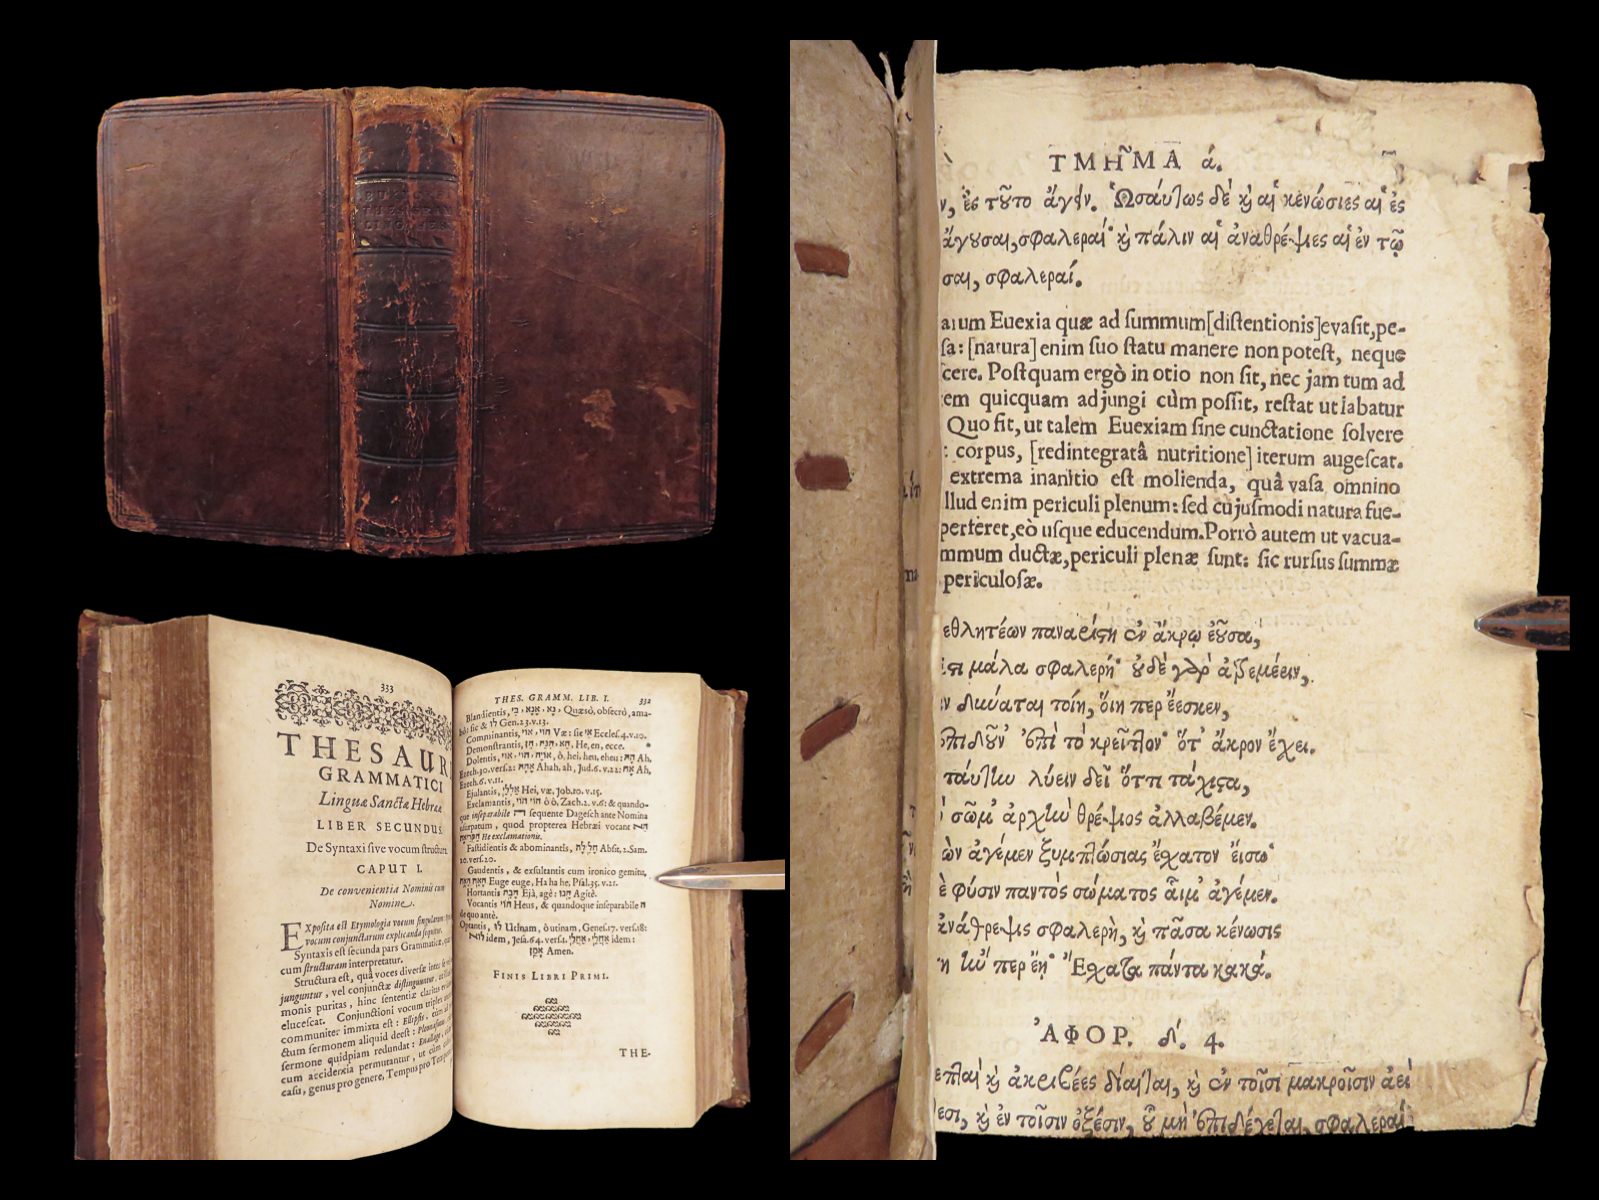 THES GRAM
LING HEB
333
THESAURI
GRAMMATICI
Linguæ Sanctæ Hebrææ
LIBER SECUNDUS.
De Syntaxi ſive vocum ſtructura
CAPUT I.
De convenientia Nominis cum
Nomine.
EXpoſita eſt Etymologia vocum ſingularum:
vocum conjunctarum explicanda ſequitur.
Syntaxis eſt ſecunda pars Grammaticæ,
cum ſtructuram interpretatur.
Structura eſt, quâ voces diverſæ inter ſe
junguntur, vel conjunctæ diſtinguuntur,
monis puritas, hinc ſententiæ claritas
eluceſcat. Conjunctioni vocum triplex
communiter immixta eſt: Ellipſis, cùm
ctum ſermonem aliquid deeſt: Pleonaſmus,
ſermone quidpiam redundat: Enallage,
cum accidentia permutantur, ut cùm
caſu, genus pro genere, Tempus pro Tempore
THES. GRAMM. LIB. I. 332
Blandientis, Quæſò, obſecrò, ama-
bò: ſic & לו Gen.23.v.13.
Comminantis, הוי, אוי Væ: ſic אי Eccleſ.4.v.10.
Demonſtrantis, הא, הנה, הן, He, en, ecce.
Dolentis, ò, hei, heu, eheu: Ah,
Ezech.30.verſ.2: Ahah, ah, Jud.6.v.22: אח Ah,
Ezech.6.v.11.
Ejulantis, אללי Hei, væ, Job.10.v.15.
Exclamantis, הוי הוי ò ò, Zach.2.v.6: & quando-
que inſeparabile ה ſequente Dageſch ante Nomina
uſurpatum, quod propterea Hebræi vocant
He exclamationis.
Faſtidientis & abominantis, Abſit, 2.Sam.
20.verſ.20.
Gaudentis, & exſultantis cum ironico gemitu,
האח האח Euge euge, Ha ha he, Pſal.35.v.21.
Hortantis הבה Ejà, agè: הבו Agitè.
Vocantis הוי Heus, & quandoque inſeparabile ה
de quo antè.
Optantis, לו Utinam, ò utinam, Geneſ.17.verſ.18:
idem, Jeſa.64.verſ.1. אחלי, אחלי idem:
אמן Amen.
FINIS LIBRI PRIMI.
THE-
ΤΜΗ͂ΜΑ ά.
ν, ἐς τȣ͂το ἄγειν. Ὡσαύτως δὲ ϗ αἱ κενώσιες αἱ ἐς
ἄγȣσαι, σφαλεραί· ϗ πάλιν αἱ ἀναθρέψιες αἱ ἐν τῷ
σαι, σφαλεραί.
arum Euexia quæ ad ſummum[diſtentionis]evaſit,pe-
ſa: [natura] enim ſuo ſtatu manere non poteſt, neque
ſcere. Poſtquam ergò in otio non ſit, nec jam tum ad
rem quicquam adjungi cùm poſſit, reſtat ut labatur
Quo fit, ut talem Euexiam ſine cunctatione ſolvere
: corpus, [redintegratâ nutritione] iterum augeſcat.
extrema inanitio eſt molienda, quâ vaſa omnino
llud enim periculi plenum: ſed cujuſmodi natura fue-
perferet, eò uſque educendum. Porrò autem ut vacua-
mmum ductæ, periculi plenæ ſunt: ſic rurſus ſummæ
periculoſæ.
εθλητέων παναρίστη ἐν ἄκρῳ ἐȣ͂σα,
μάλα σφαλερή· ȣ̓δὲ γὰρ ἀτρεμέειν,
ν δύναται τοίη, ὅιη περ ἔεσκεν,
ἐπιδȣ͂ν' ἐπὶ τὸ κρεῖττον· ὅτ' ἄκρον ἔχει.
ταύτην λύειν δεῖ ὅττι τάχιστα,
σῶμ' ἀρχὴν θρέψιος ἀλλαβέμεν.
ὼν ἀγέμεν ξυμπτώσιας ἔσχατον ἔισω·
ὲ φύσιν παντὸς σώματος ἆιμ' ἀγέμεν.
ἀνάθρεψις σφαλερὴ, ϗ πᾶσα κένωσις
ἢν περ ἔῃ· Ἔσχατα πάντα κακά.
ἈΦΟΡ. δ. 4.
επταὶ ϗ ἀκριβέες δίαιται, ϗ ἐν τοῖσι μακροῖσιν ἀεὶ
εσι, ϗ ἐν τοῖσιν ὀξέσιν, ȣ̔͂ μὴ ἐπιδέχεται, σφαλεραί